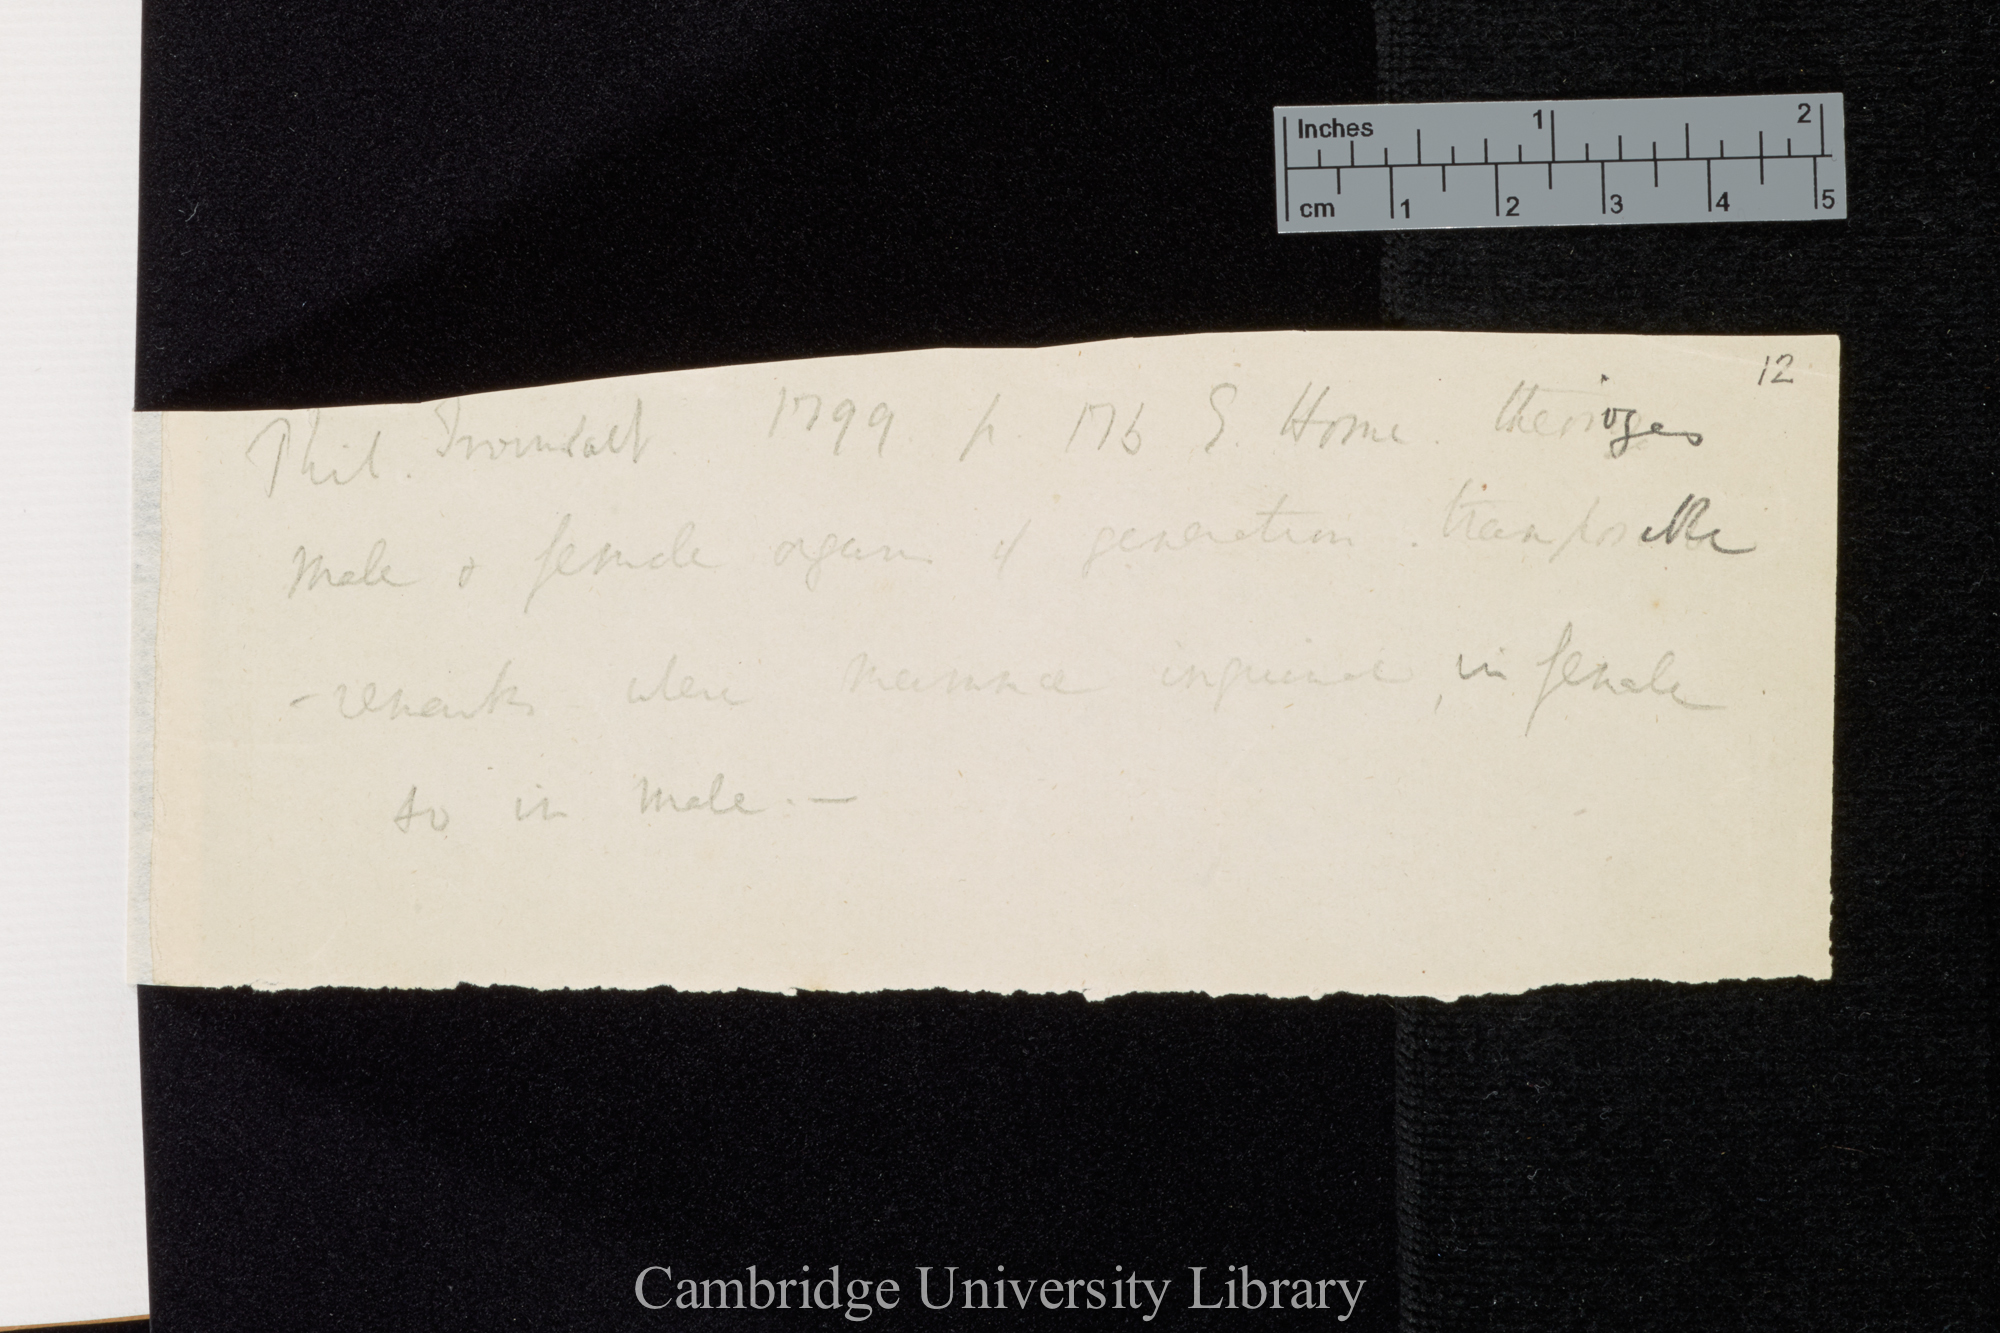 Inches 1 2
cm 1 2 3 4 5
12
Phil. Transact 1799 p. 176 E. Home.
Male & female organs of generation.
- remarks when mammæ inguinal, in female
so in male. —
Cambridge University Library